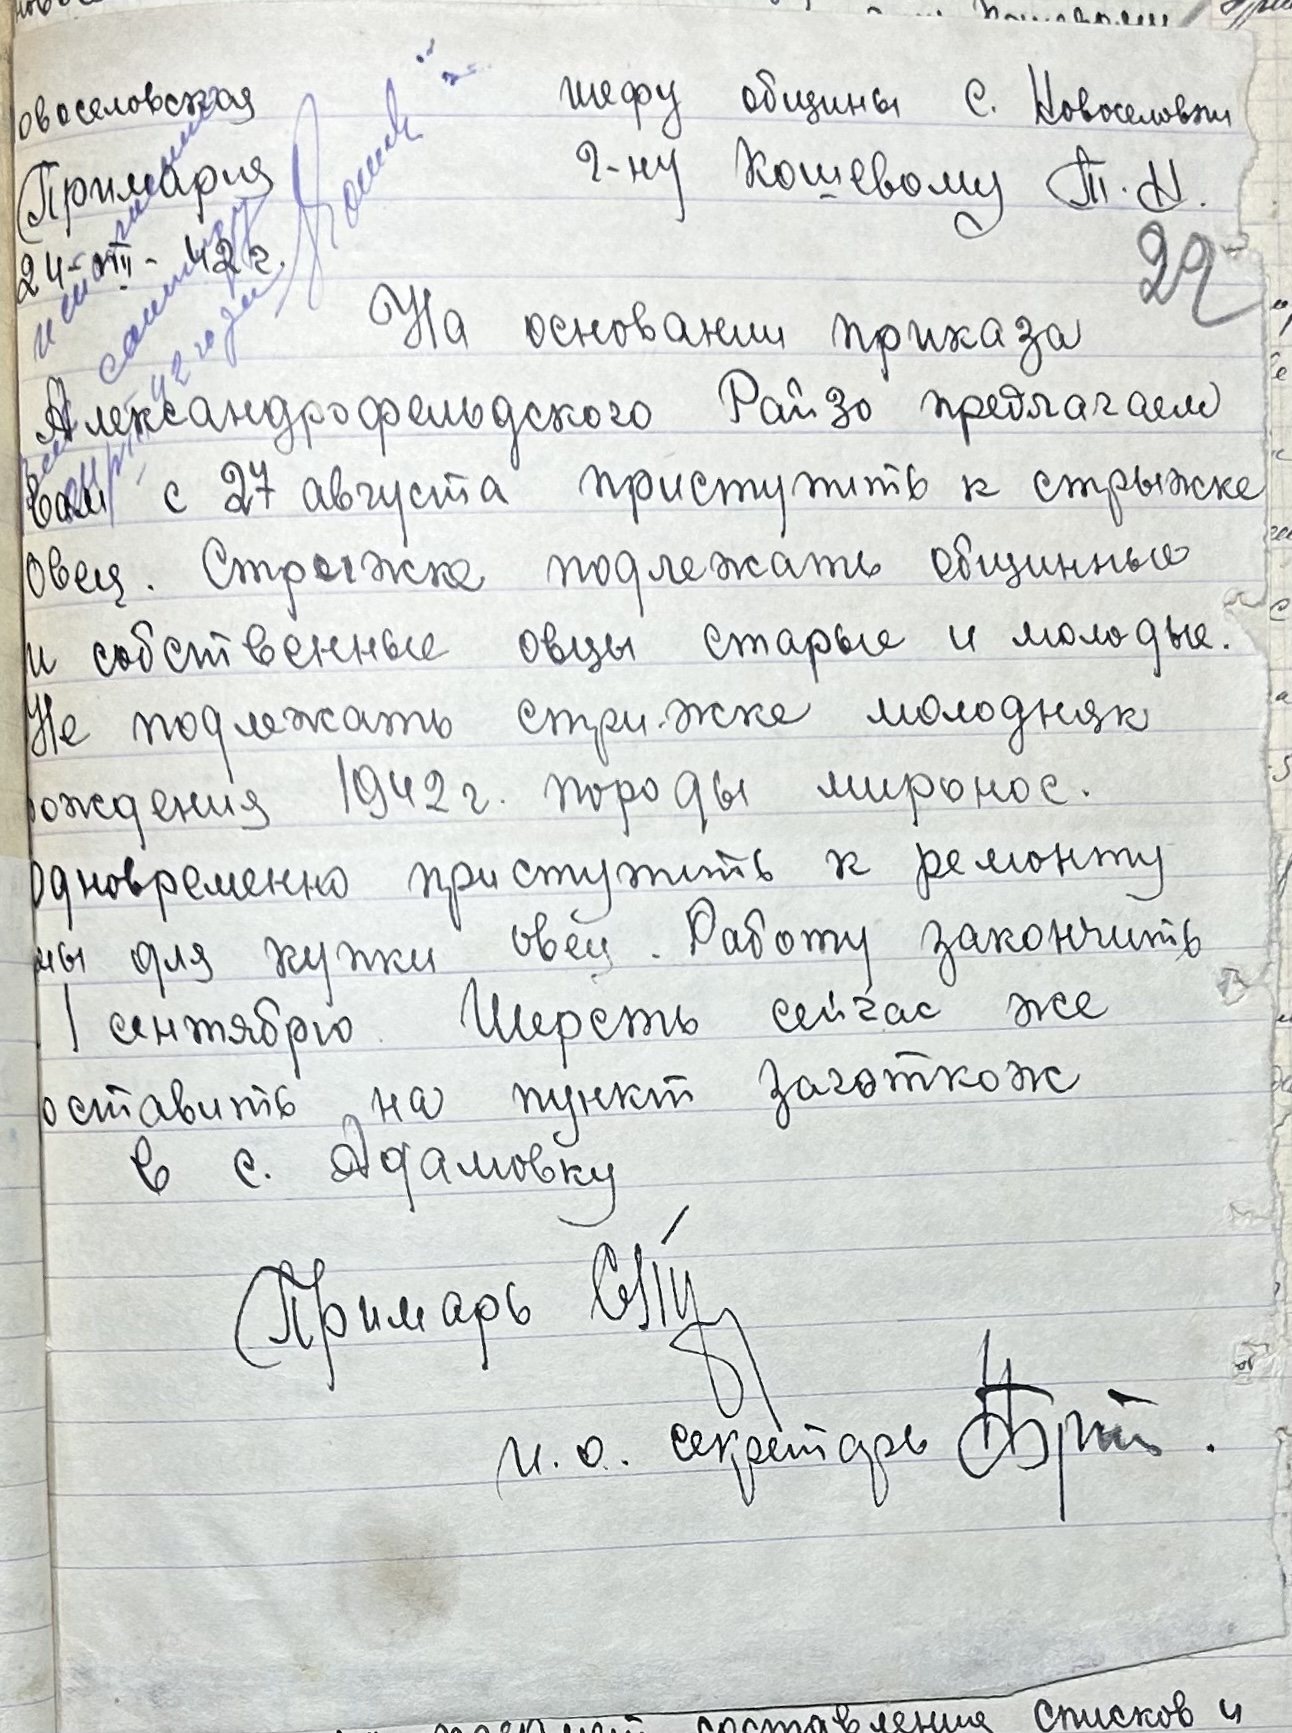 овоселовская
Примария
24-VIII-42 г.
шефу общины с. Новоселовки
г-ну Кошевому Т. Н.
29
На основании приказа
Александрофельдского Райзо предлагаем
Вам с 27 августа приступить к стрыжке
овец. Стрыжке подлежать общинные
и собственные овцы старые и молодые.
Не подлежать стрижке молодняк
рождения 1942 г. породы миронос.
одновременно приступить к ремонту
мы для купки овец. Работу закончить
1 сентябрю Шерсть сейчас же
оставить на пункт заготкож
в с. Адамовку
Примарь
и. о. секретарь
составления списков и